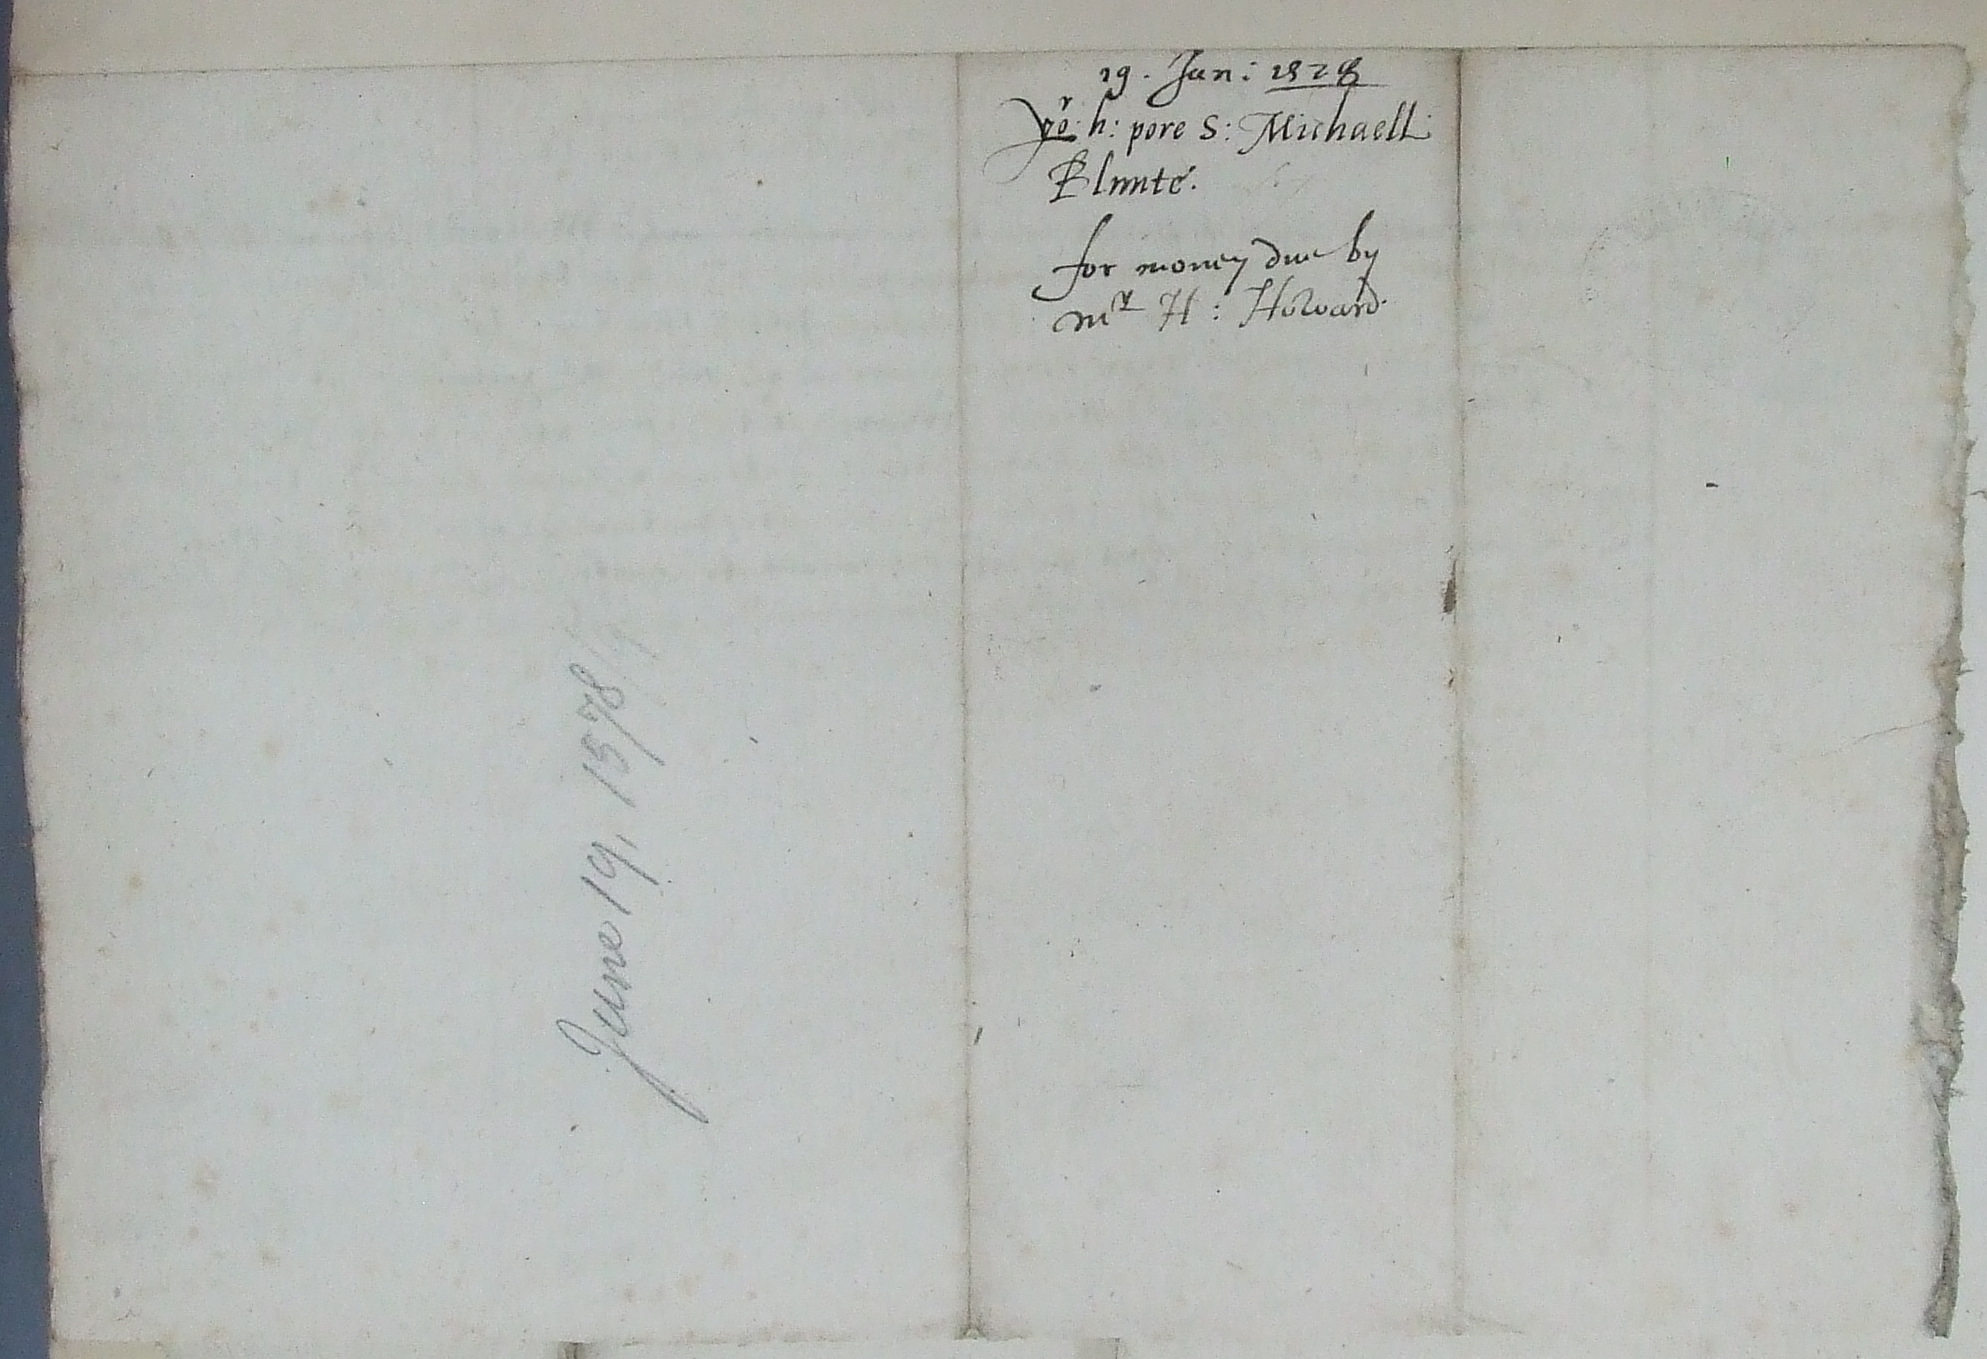 19. Jan: 1578
yor h: pore S: Michaell
Blunte.
for money due by
mr H: Howard.
June 19, 1578/9